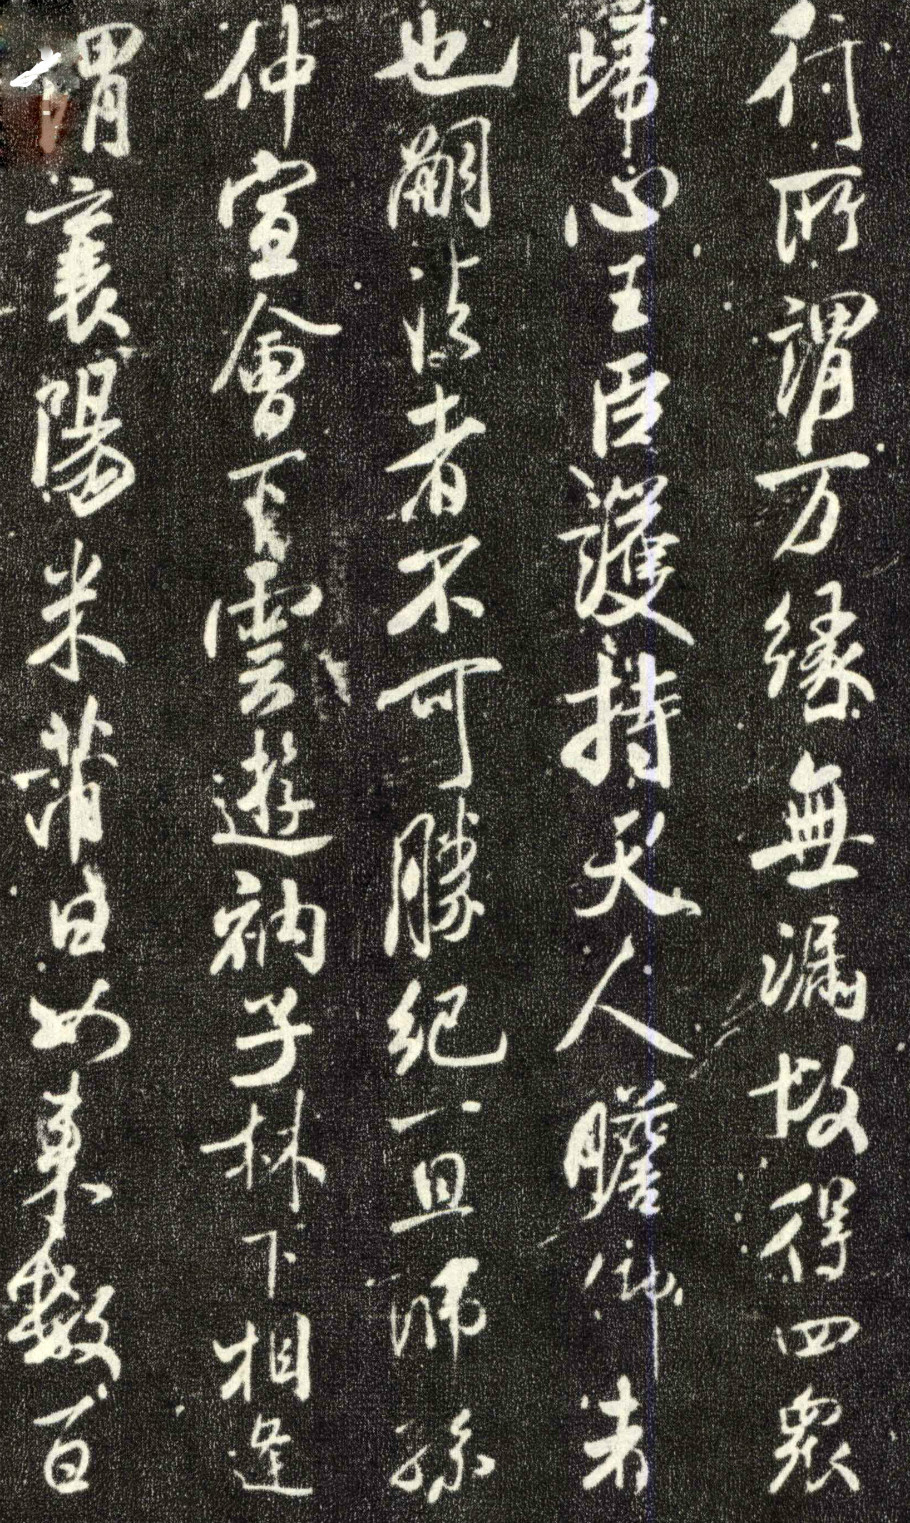 行所謂万緣無漏故得四眾
歸心王臣護持天人瞻仰者
也嗣法者不可勝紀一旦師孫
仲宣會下雲遊衲子林下相逢
謂襄陽米芾曰如來數百